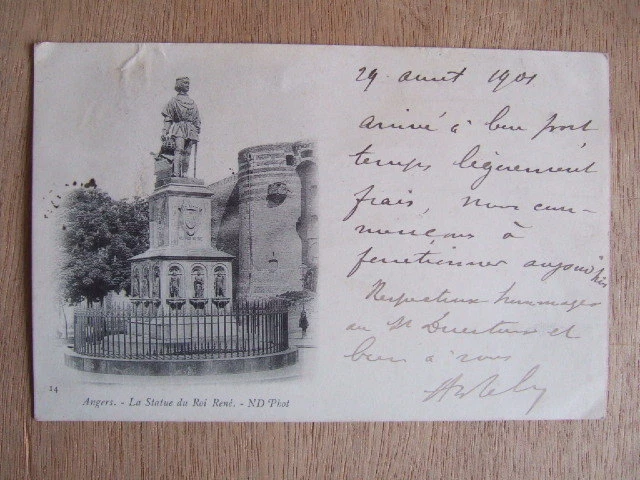 29 août 1901
arrivé à bon port
temps légèrement
frais, nous com-
mençons à
fonctionner aujourd'hui
Respectueux hommages
au Mr Directeur et
bien à vous
14
Angers. - La Statue du Roi René. - ND Phot